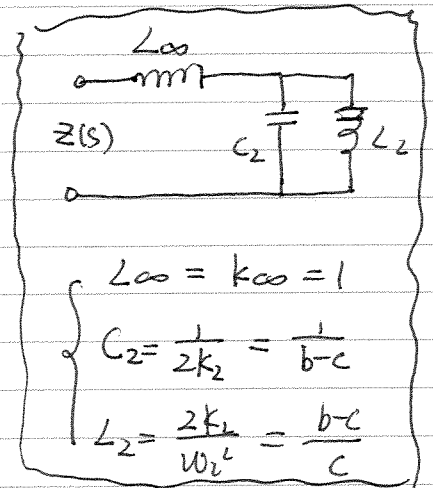 L∞
Z(s)
C₂
L₂
L∞ = k∞ = 1
C₂ = 1/2k₂ = 1/b-c
L₂ = 2k₂/ω₂² = b-c/c